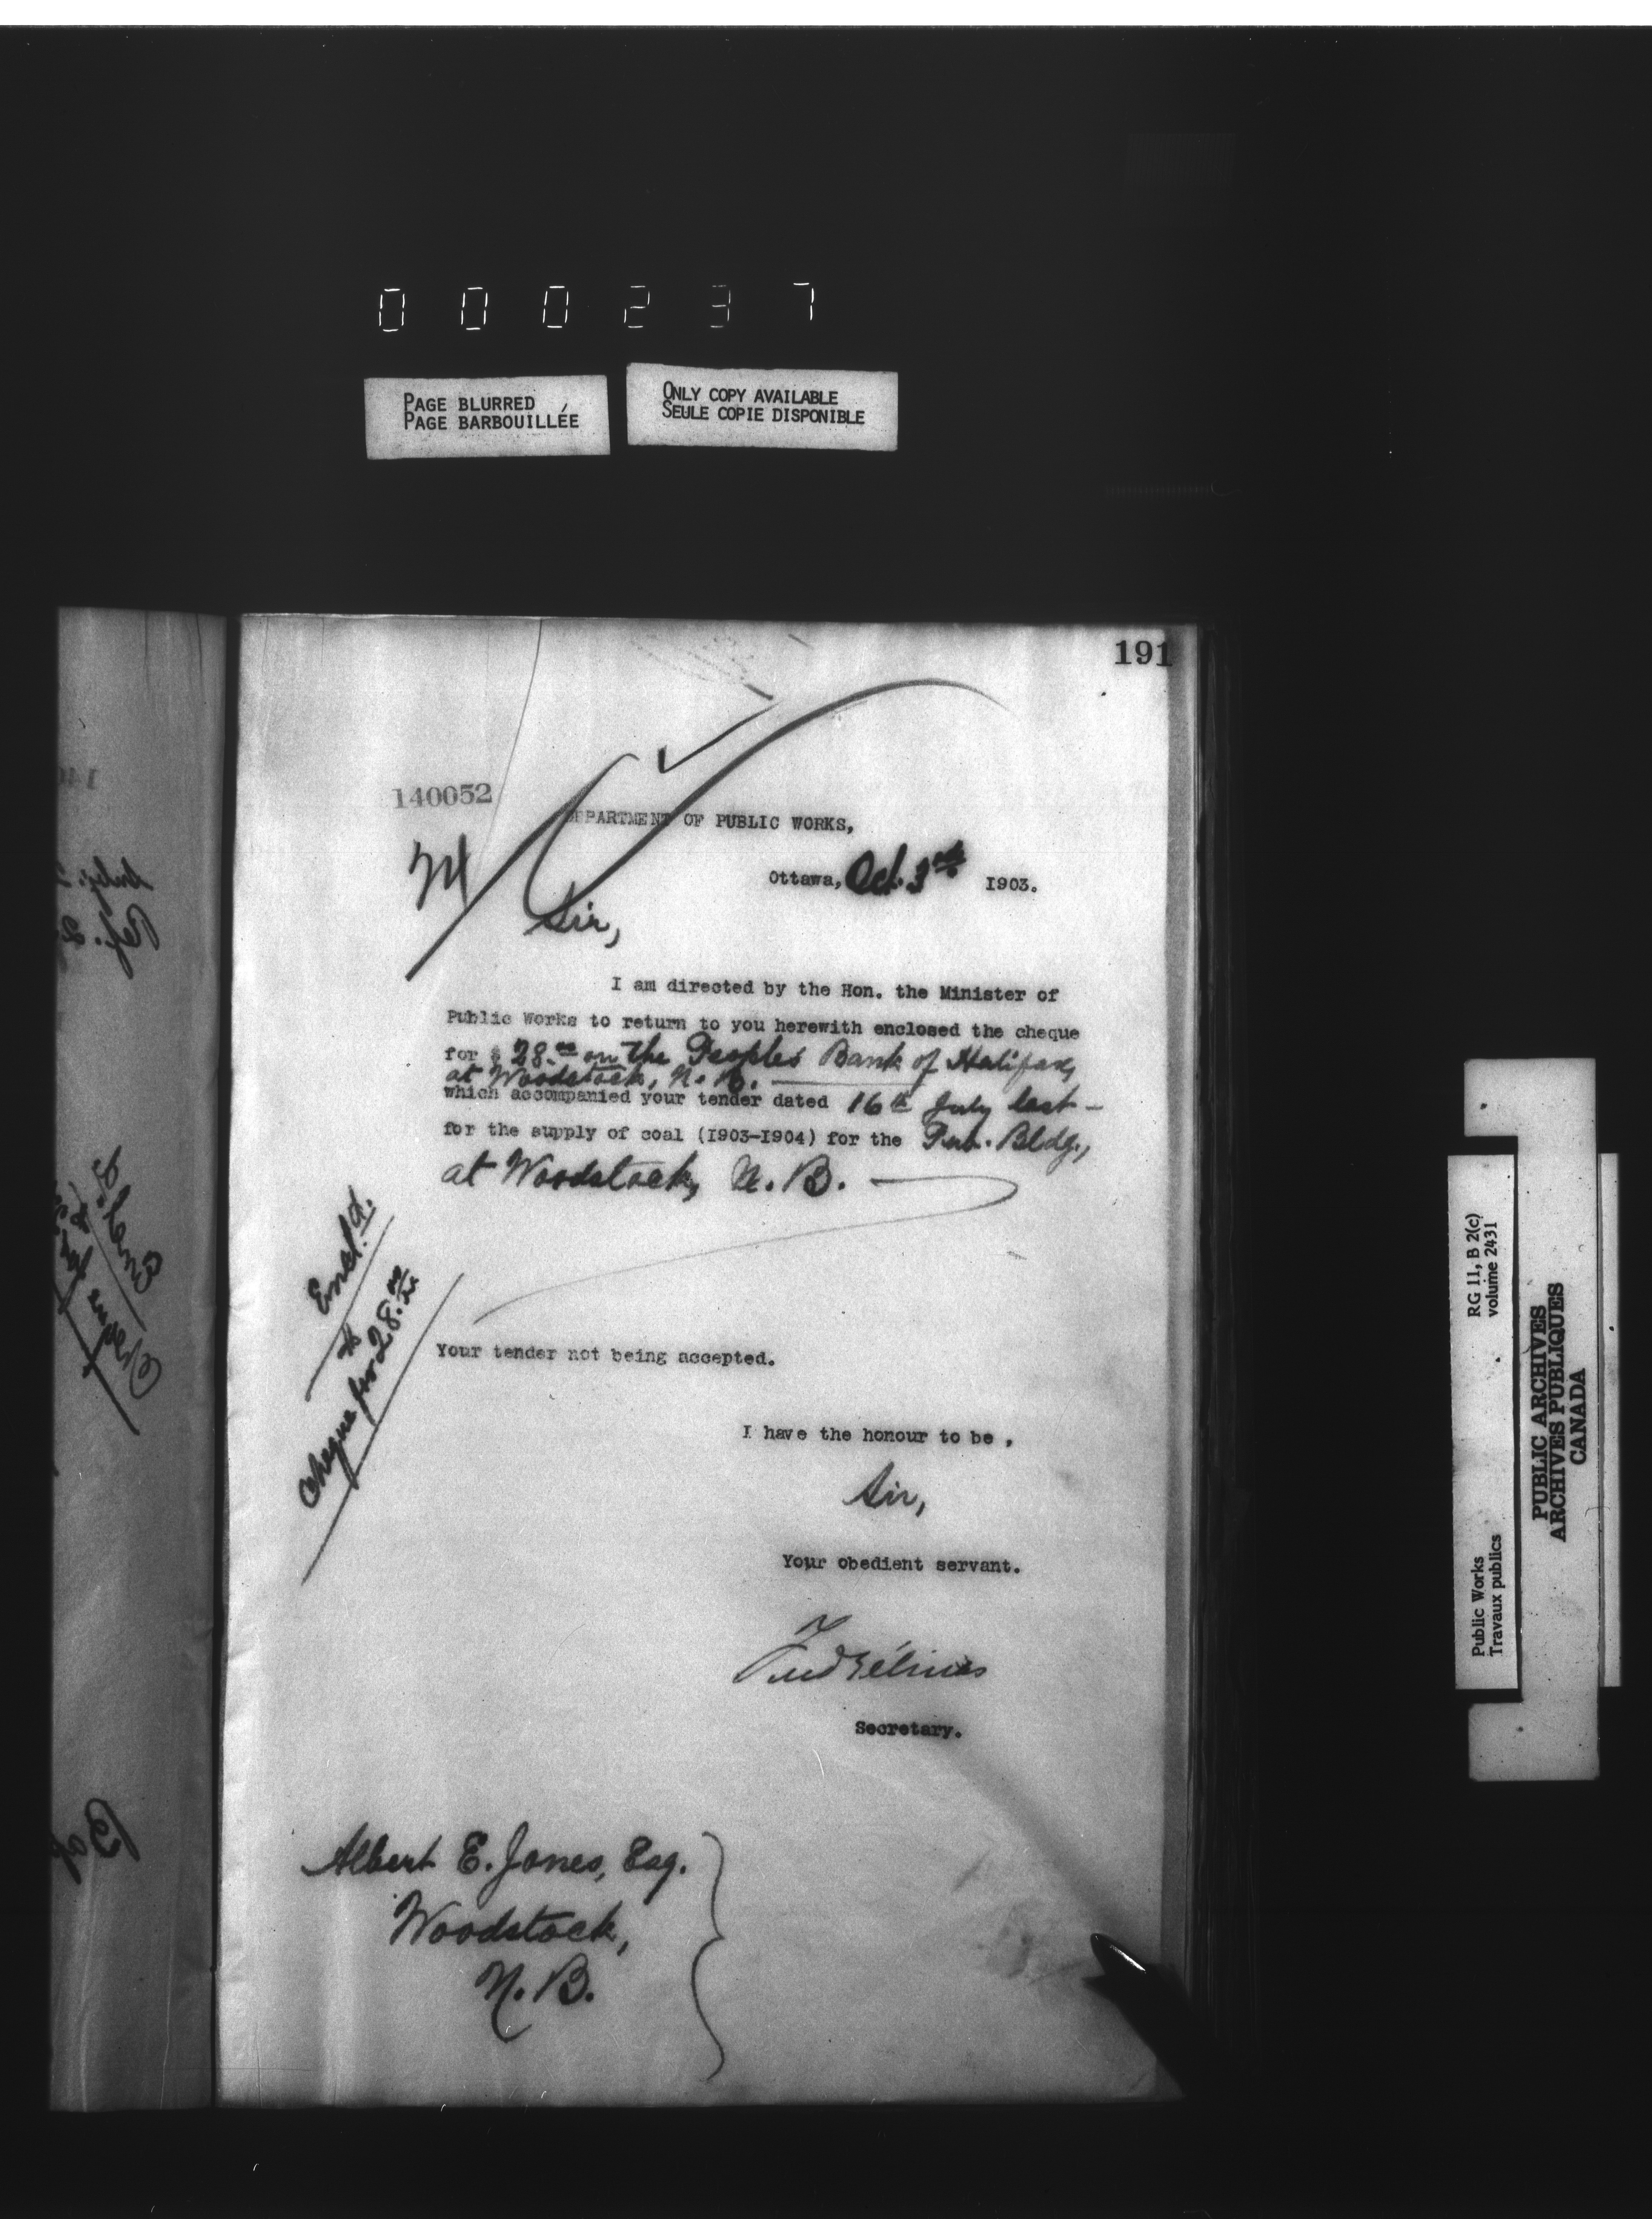 000237
PAGE BLURRED
PAGE BARBOUILLÉE
ONLY COPY AVAILABLE
SEULE COPIE DISPONIBLE
191
140052
DEPARTMENT OF PUBLIC WORKS,
Ottawa, Oct. 3rd 1903.
Sir,
I am directed by the Hon. the Minister of
Public Works to return to you herewith enclosed the cheque
for $ 28.00 on the Peoples Bank of Halifax,
at Woodstock, N.B.
which accompanied your tender dated 16th July last -
for the supply of coal (1903-1904) for the Pub. Bldg.,
at Woodstock, N.B.
Encl.d.
Cheque for $28.00
Your tender not being accepted.
I have the honour to be,
Sir,
Your obedient servant.
Fred Gélinas
Secretary.
Albert E. Jones, Esq.
Woodstock,
N.B.
RG 11, B 2(c)
volume 2431
Public Works
Travaux publics
PUBLIC ARCHIVES
ARCHIVES PUBLIQUES
CANADA